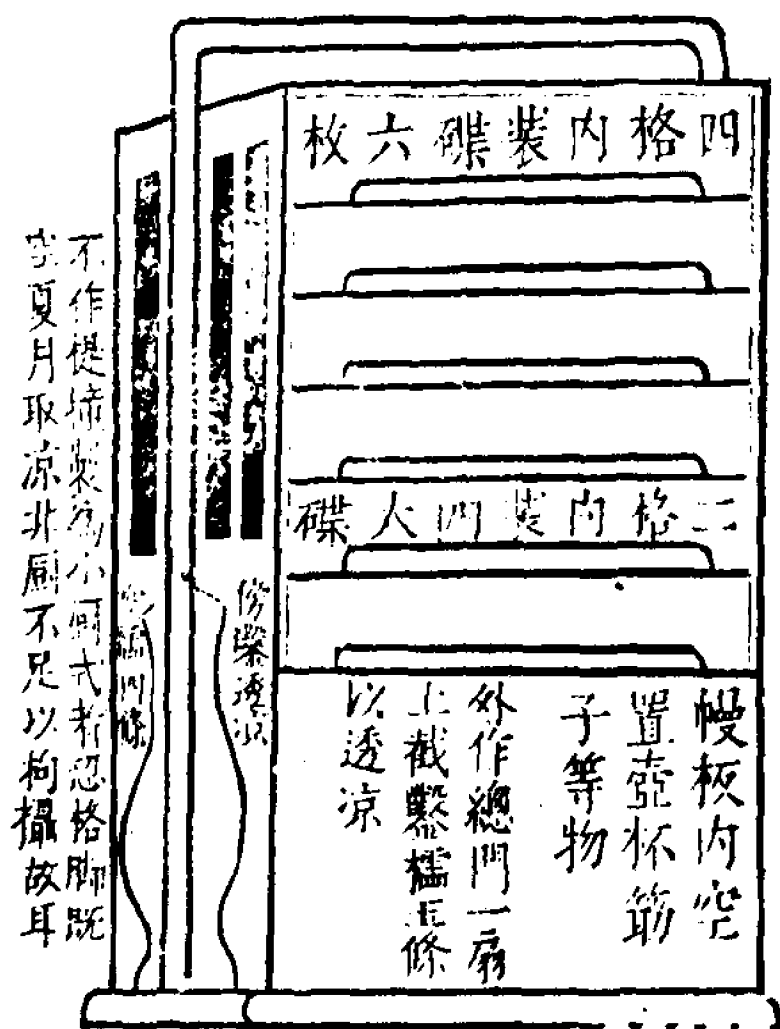 四格内裝碟六枚
二格内裝四大碟
幔板内空
置壺杯筯
子等物
外作總門一扇
上截鑿櫺五條
以透凉
傍鑿透凉
櫺四條
不作提製為小厨式者格脚既
空夏月取凉非厨不足以拘攝故耳